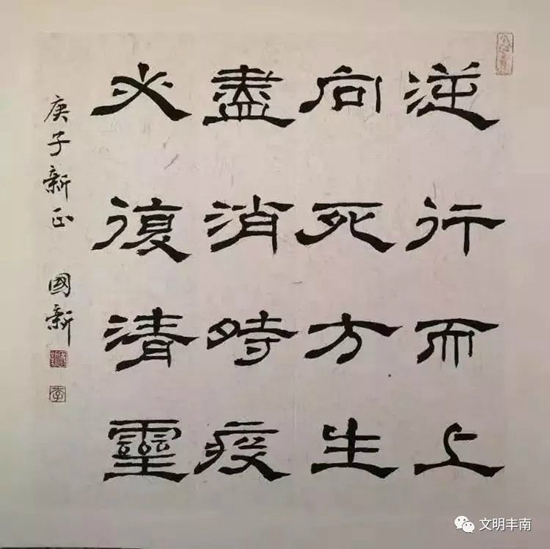 逆行而上
向死方生
盡消時疫
必復清靈
庚子新正 國新
文明丰南